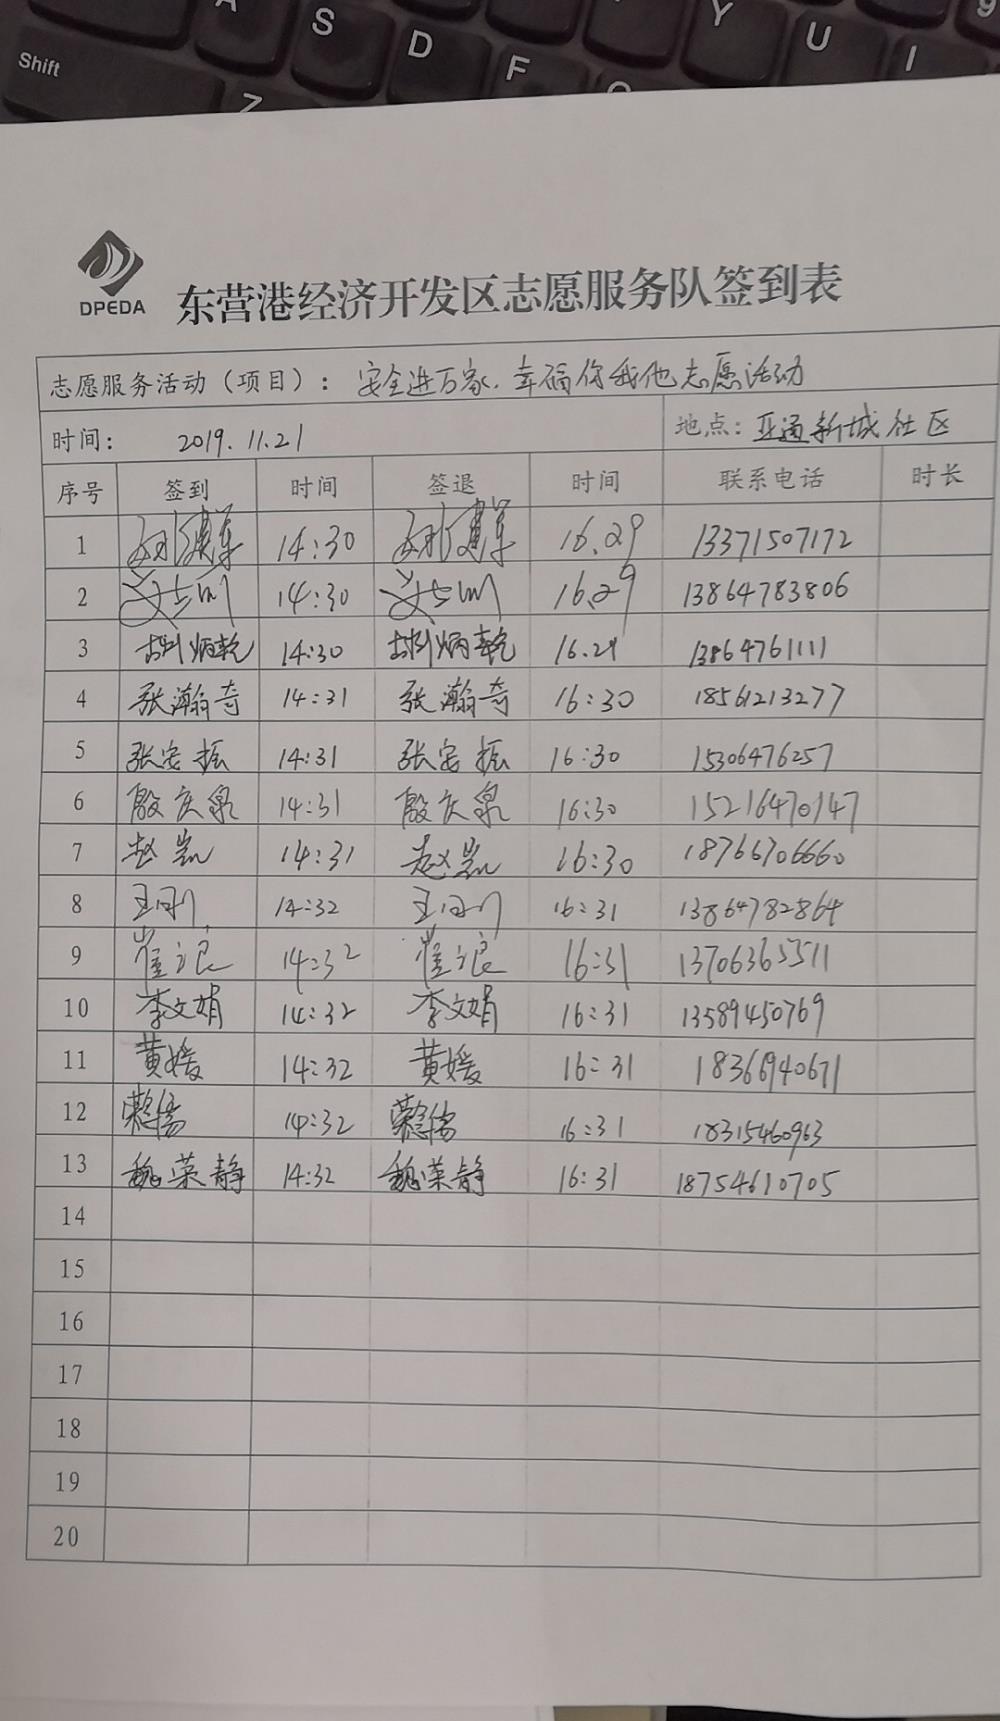 A S D F Y U I 9
Shift Z
DPEDA
东营港经济开发区志愿服务队签到表
志愿服务活动（项目）：安全进万家.幸福你我他志愿活动
时间： 2019.11.21 地点：亚通新城社区
序号 签到 时间 签退 时间 联系电话 时长
1 14:30 16.29 13371507172
2 14:30 16.29 13864783806
3 胡炳乾 14:30 胡炳乾 16.29 13864761111
4 张瀚奇 14:31 张瀚奇 16:30 18561213277
5 张安振 14:31 张安振 16:30 15306476257
6 殷庆泉 14:31 殷庆泉 16:30 15216470147
7 赵凯 14:31 赵凯 16:30 18766706660
8 14:32 16:31 13864782864
9 崔浪 14:32 崔浪 16:31 13706365511
10 李文娟 14:32 李文娟 16:31 13589450769
11 黄媛 14:32 黄媛 16:31 18366940671
12 14:32 16:31 18315460963
13 魏荣静 14:32 魏荣静 16:31 18754610705
14
15
16
17
18
19
20